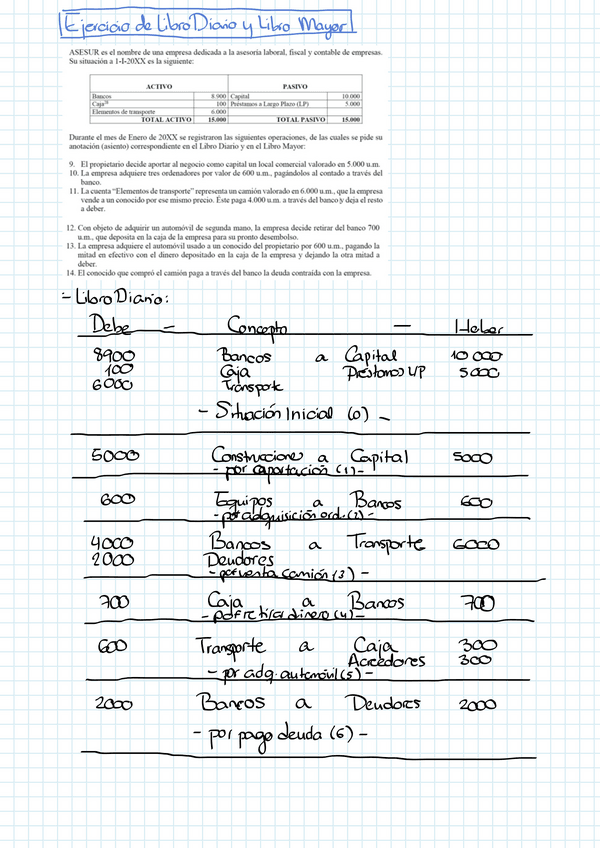 Ejercicio de Libro Diario y Libro Mayor
ASESUR es el nombre de una empresa dedicada a la asesoría laboral, fiscal y contable de empresas.
Su situación a 1-I-20XX es la siguiente:
ACTIVO PASIVO
Bancos 8.900 Capital 10.000
Caja 100 Préstamos a Largo Plazo (LP) 5.000
Elementos de transporte 6.000
TOTAL ACTIVO 15.000 TOTAL PASIVO 15.000
Durante el mes de Enero de 20XX se registraron las siguientes operaciones, de las cuales se pide su
anotación (asiento) correspondiente en el Libro Diario y en el Libro Mayor:
9. El propietario decide aportar al negocio como capital un local comercial valorado en 5.000 u.m.
10. La empresa adquiere tres ordenadores por valor de 600 u.m., pagándolos al contado a través del
banco.
11. La cuenta “Elementos de transporte” representa un camión valorado en 6.000 u.m., que la empresa
vende a un conocido por ese mismo precio. Éste paga 4.000 u.m. a través del banco y deja el resto
a deber.
12. Con objeto de adquirir un automóvil de segunda mano, la empresa decide retirar del banco 700
u.m., que deposita en la caja de la empresa para su pronto desembolso.
13. La empresa adquiere el automóvil usado a un conocido del propietario por 600 u.m., pagando la
mitad en efectivo con el dinero depositado en la caja de la empresa y dejando la otra mitad a
deber.
14. El conocido que compró el camión paga a través del banco la deuda contraída con la empresa.
- Libro Diario:
Debe - Concepto - Haber
8900 Bancos a Capital 10 000
100 Caja Préstamos L/P 5000
6000 Transporte
- Situación Inicial (0) -
5000 Construcciones a Capital 5000
- por aportación (1) -
600 Equipos a Bancos 600
- por adquisición ord. (2) -
4000 Bancos a Transporte 6000
2000 Deudores
- por venta camión (3) -
700 Caja a Bancos 700
- por retirar dinero (4) -
600 Transporte a Caja 300
Acreedores 300
- por adq. automóvil (5) -
2000 Bancos a Deudores 2000
- por pago deuda (6) -